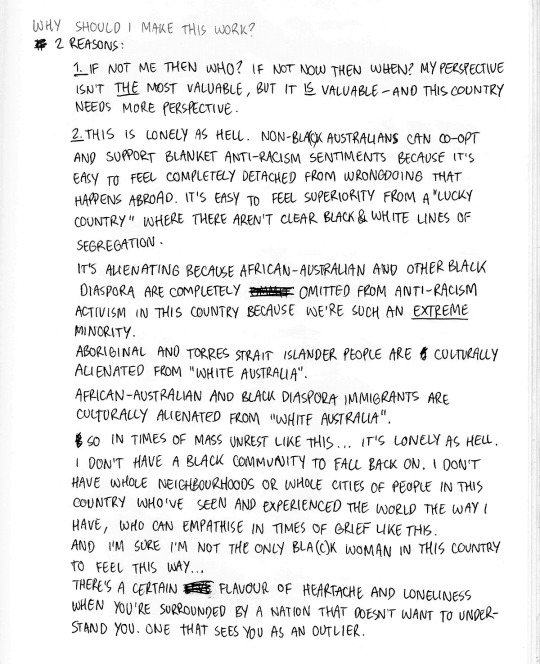 WHY SHOULD I MAKE THIS WORK?
2 REASONS:
1. IF NOT ME THEN WHO? IF NOT NOW THEN WHEN? MY PERSPECTIVE
ISN'T THE MOST VALUABLE, BUT IT IS VALUABLE - AND THIS COUNTRY
NEEDS MORE PERSPECTIVE.
2. THIS IS LONELY AS HELL. NON-BLACK AUSTRALIANS CAN CO-OPT
AND SUPPORT BLANKET ANTI-RACISM SENTIMENTS BECAUSE IT'S
EASY TO FEEL COMPLETELY DETACHED FROM WRONGDOING THAT
HAPPENS ABROAD. IT'S EASY TO FEEL SUPERIORITY FROM A "LUCKY
COUNTRY" WHERE THERE AREN'T CLEAR BLACK & WHITE LINES OF
SEGREGATION.
IT'S ALIENATING BECAUSE AFRICAN-AUSTRALIAN AND OTHER BLACK
DIASPORA ARE COMPLETELY OMITTED FROM ANTI-RACISM
ACTIVISM IN THIS COUNTRY BECAUSE WE'RE SUCH AN EXTREME
MINORITY.
ABORIGINAL AND TORRES STRAIT ISLANDER PEOPLE ARE CULTURALLY
ALIENATED FROM "WHITE AUSTRALIA".
AFRICAN-AUSTRALIAN AND BLACK DIASPORA IMMIGRANTS ARE
CULTURALLY ALIENATED FROM "WHITE AUSTRALIA".
SO IN TIMES OF MASS UNREST LIKE THIS... IT'S LONELY AS HELL.
I DON'T HAVE A BLACK COMMUNITY TO FALL BACK ON. I DON'T
HAVE WHOLE NEIGHBOURHOODS OR WHOLE CITIES OF PEOPLE IN THIS
COUNTRY WHO'VE SEEN AND EXPERIENCED THE WORLD THE WAY I
HAVE, WHO CAN EMPATHISE IN TIMES OF GRIEF LIKE THIS.
AND I'M SURE I'M NOT THE ONLY BLA(C)K WOMAN IN THIS COUNTRY
TO FEEL THIS WAY...
THERE'S A CERTAIN FLAVOUR OF HEARTACHE AND LONELINESS
WHEN YOU'RE SURROUNDED BY A NATION THAT DOESN'T WANT TO UNDER-
STAND YOU. ONE THAT SEES YOU AS AN OUTLIER.